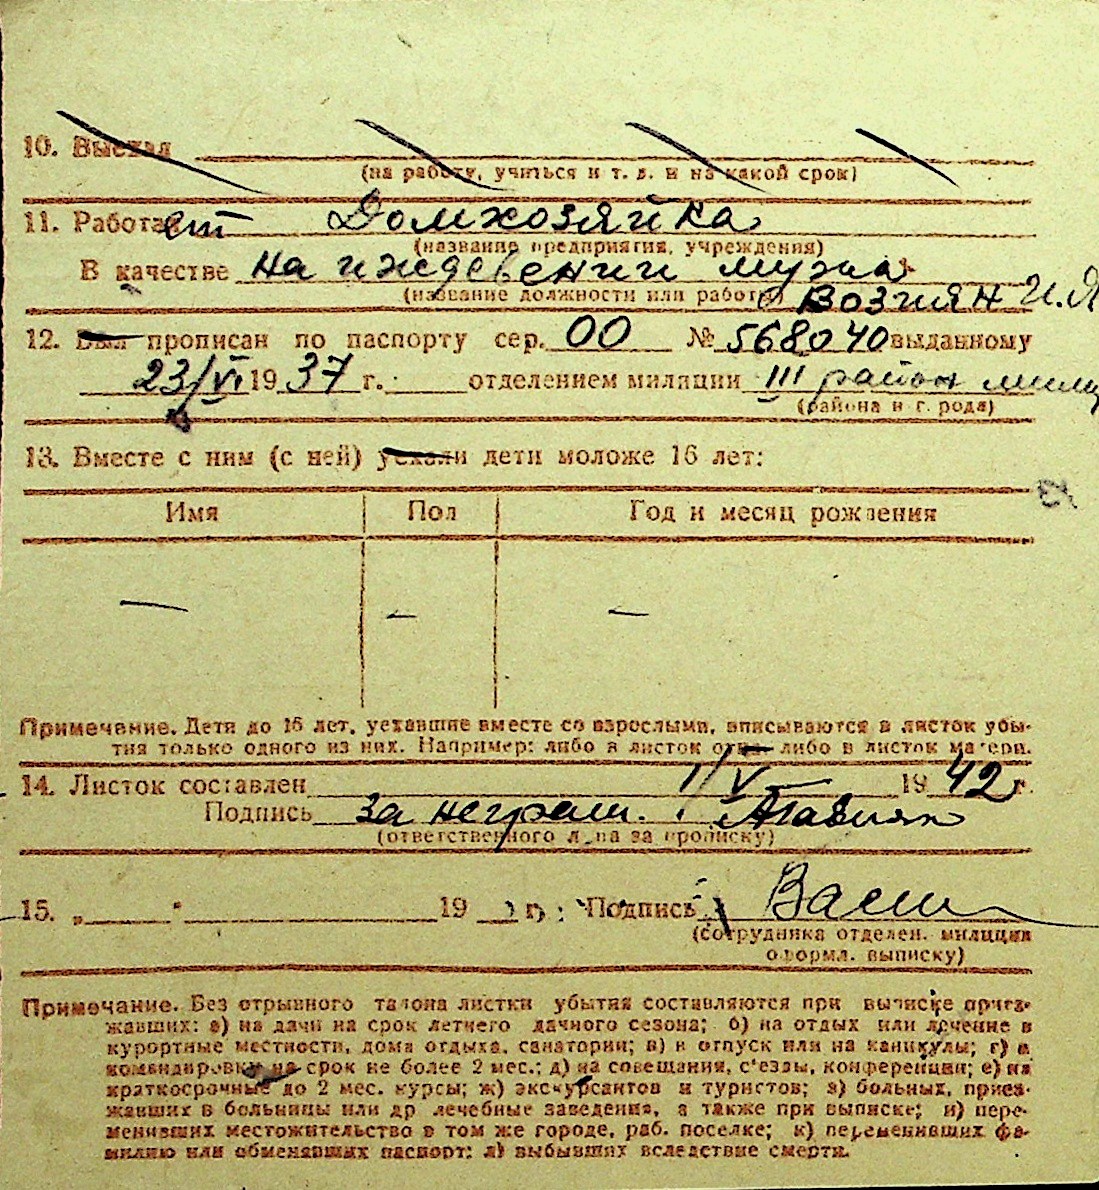 10. Выехал
(на работу, учиться и т. д. и на какой срок)
11. Работает Домхозяйка
(название предприятия, учреждения)
В качестве на иждевении мужа
(название должности или работы) Возгиян И.Я
12. Был прописан по паспорту сер. 00 № 568040 выданному
23/VI 1937 г. отделением милиции III район милиц
(района и города)
13. Вместе с ним (с ней) уехали дети моложе 16 лет:
Имя Пол Год и месяц рождения
— — —
Примечание. Дети до 16 лет, уехавшие вместе со взрослыми, вписываются в листок убы-
тия только одного из них. Например: либо в листок отца либо в листок матери.
14. Листок составлен 1/V 1942 г.
Подпись за неграм. Агавиян
(ответственного лица за прописку)
15. „ " 19 г. Подпись
(сотрудника отделен. милиции
оформл. выписку)
Примечание. Без отрывного талона листки убытия составляются при выписке приез-
жавших: а) на дачи на срок летнего дачного сезона; б) на отдых или лечение в
курортные местности, дома отдыха, санатории; в) в отпуск или на каникулы; г) в
командировку на срок не более 2 мес.; д) на совещания, с'езды, конференции; е) на
краткосрочные до 2 мес. курсы; ж) экскурсантов и туристов; з) больных, приез-
жавших в больницы или др лечебные заведения, а также при выписке; и) пере-
менивших местожительство в том же городе, раб. поселке; к) переменивших фа-
милию или обменявших паспорт; л) выбывших вследствие смерти.